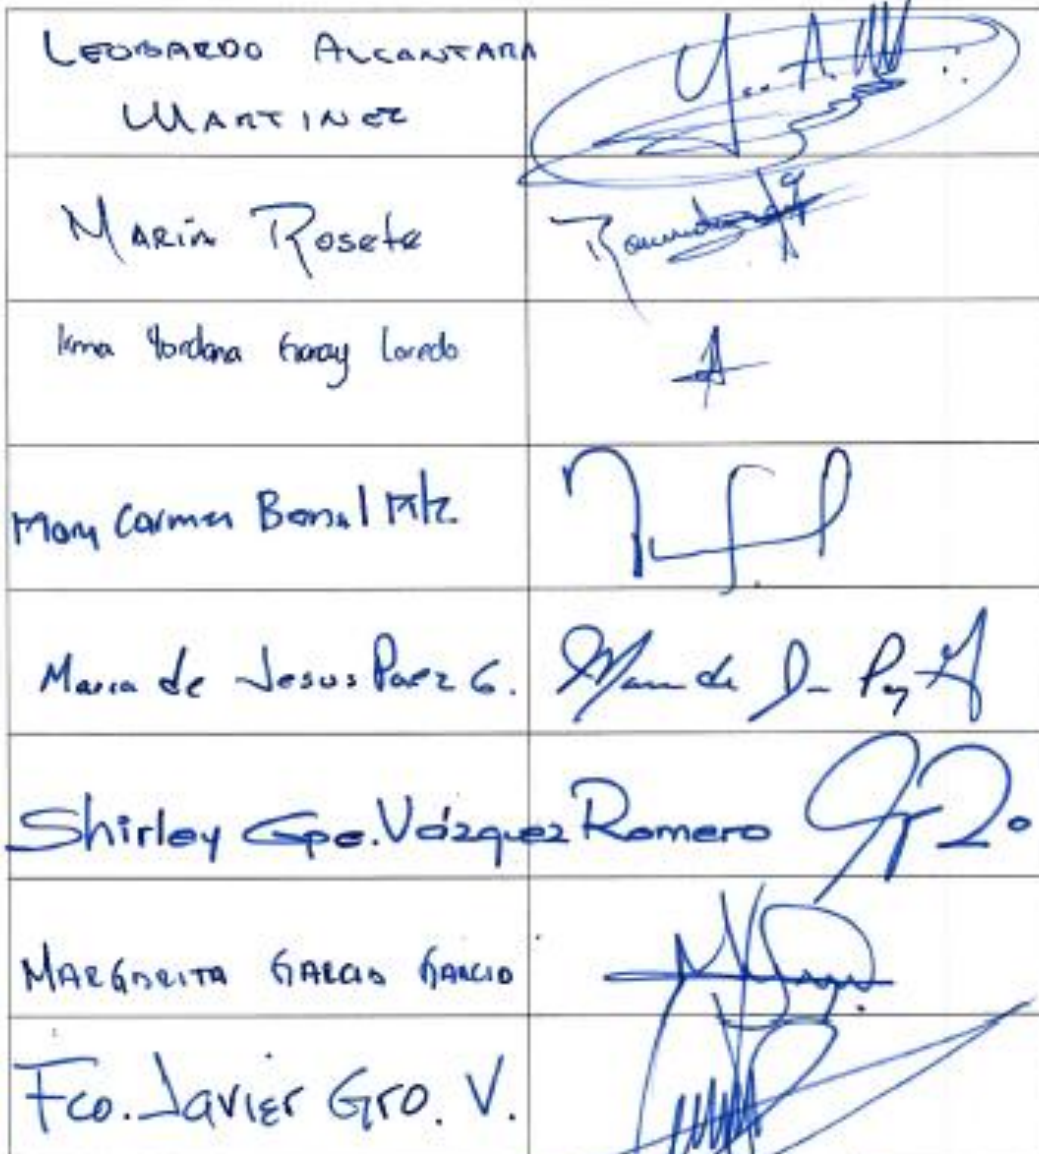 LEOBARDO ALCANTARA
MARTINEZ
MARÍA Rosete
Irma Yordana Garay Loredo
Mary Carmen Bernal Mtz.
Maria de Jesus Paez G.
Shirley Gpe. Vázquez Romero
MARGARITA GARCIA GARCIA
Fco. Javier Gro. V.